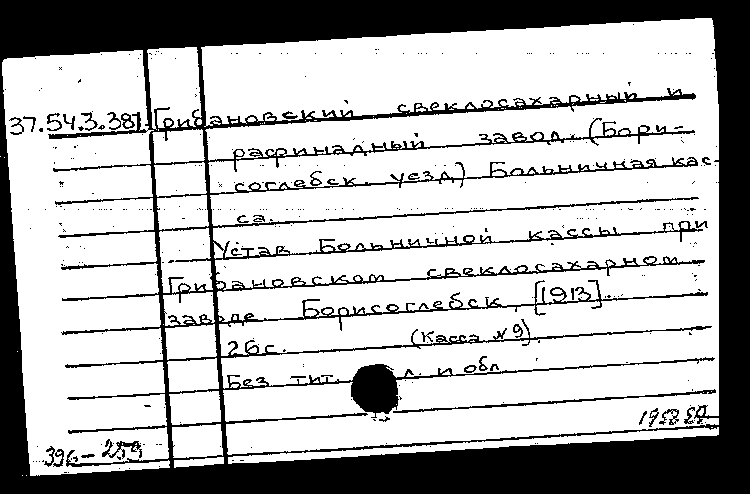 37.54.3.381. Грибановский свеклосахарный и
рафинадный завод. (Бори-
соглебск. уезд) Больничная кас-
са.
Устав Больничной кассы при
Грибановском свеклосахарном
заводе. Борисоглебск, [1913].
26с. (Касса №9).
Без тит. л. и обл.
396-259